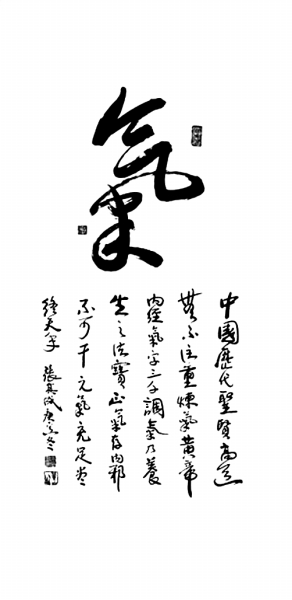 氣
中國歷代聖賢高道
無不注重煉氣黃帝
內經氣字三千調氣乃養
生之法寶正氣存內邪
不可干元氣充足尽
終天年 張其成庚子冬